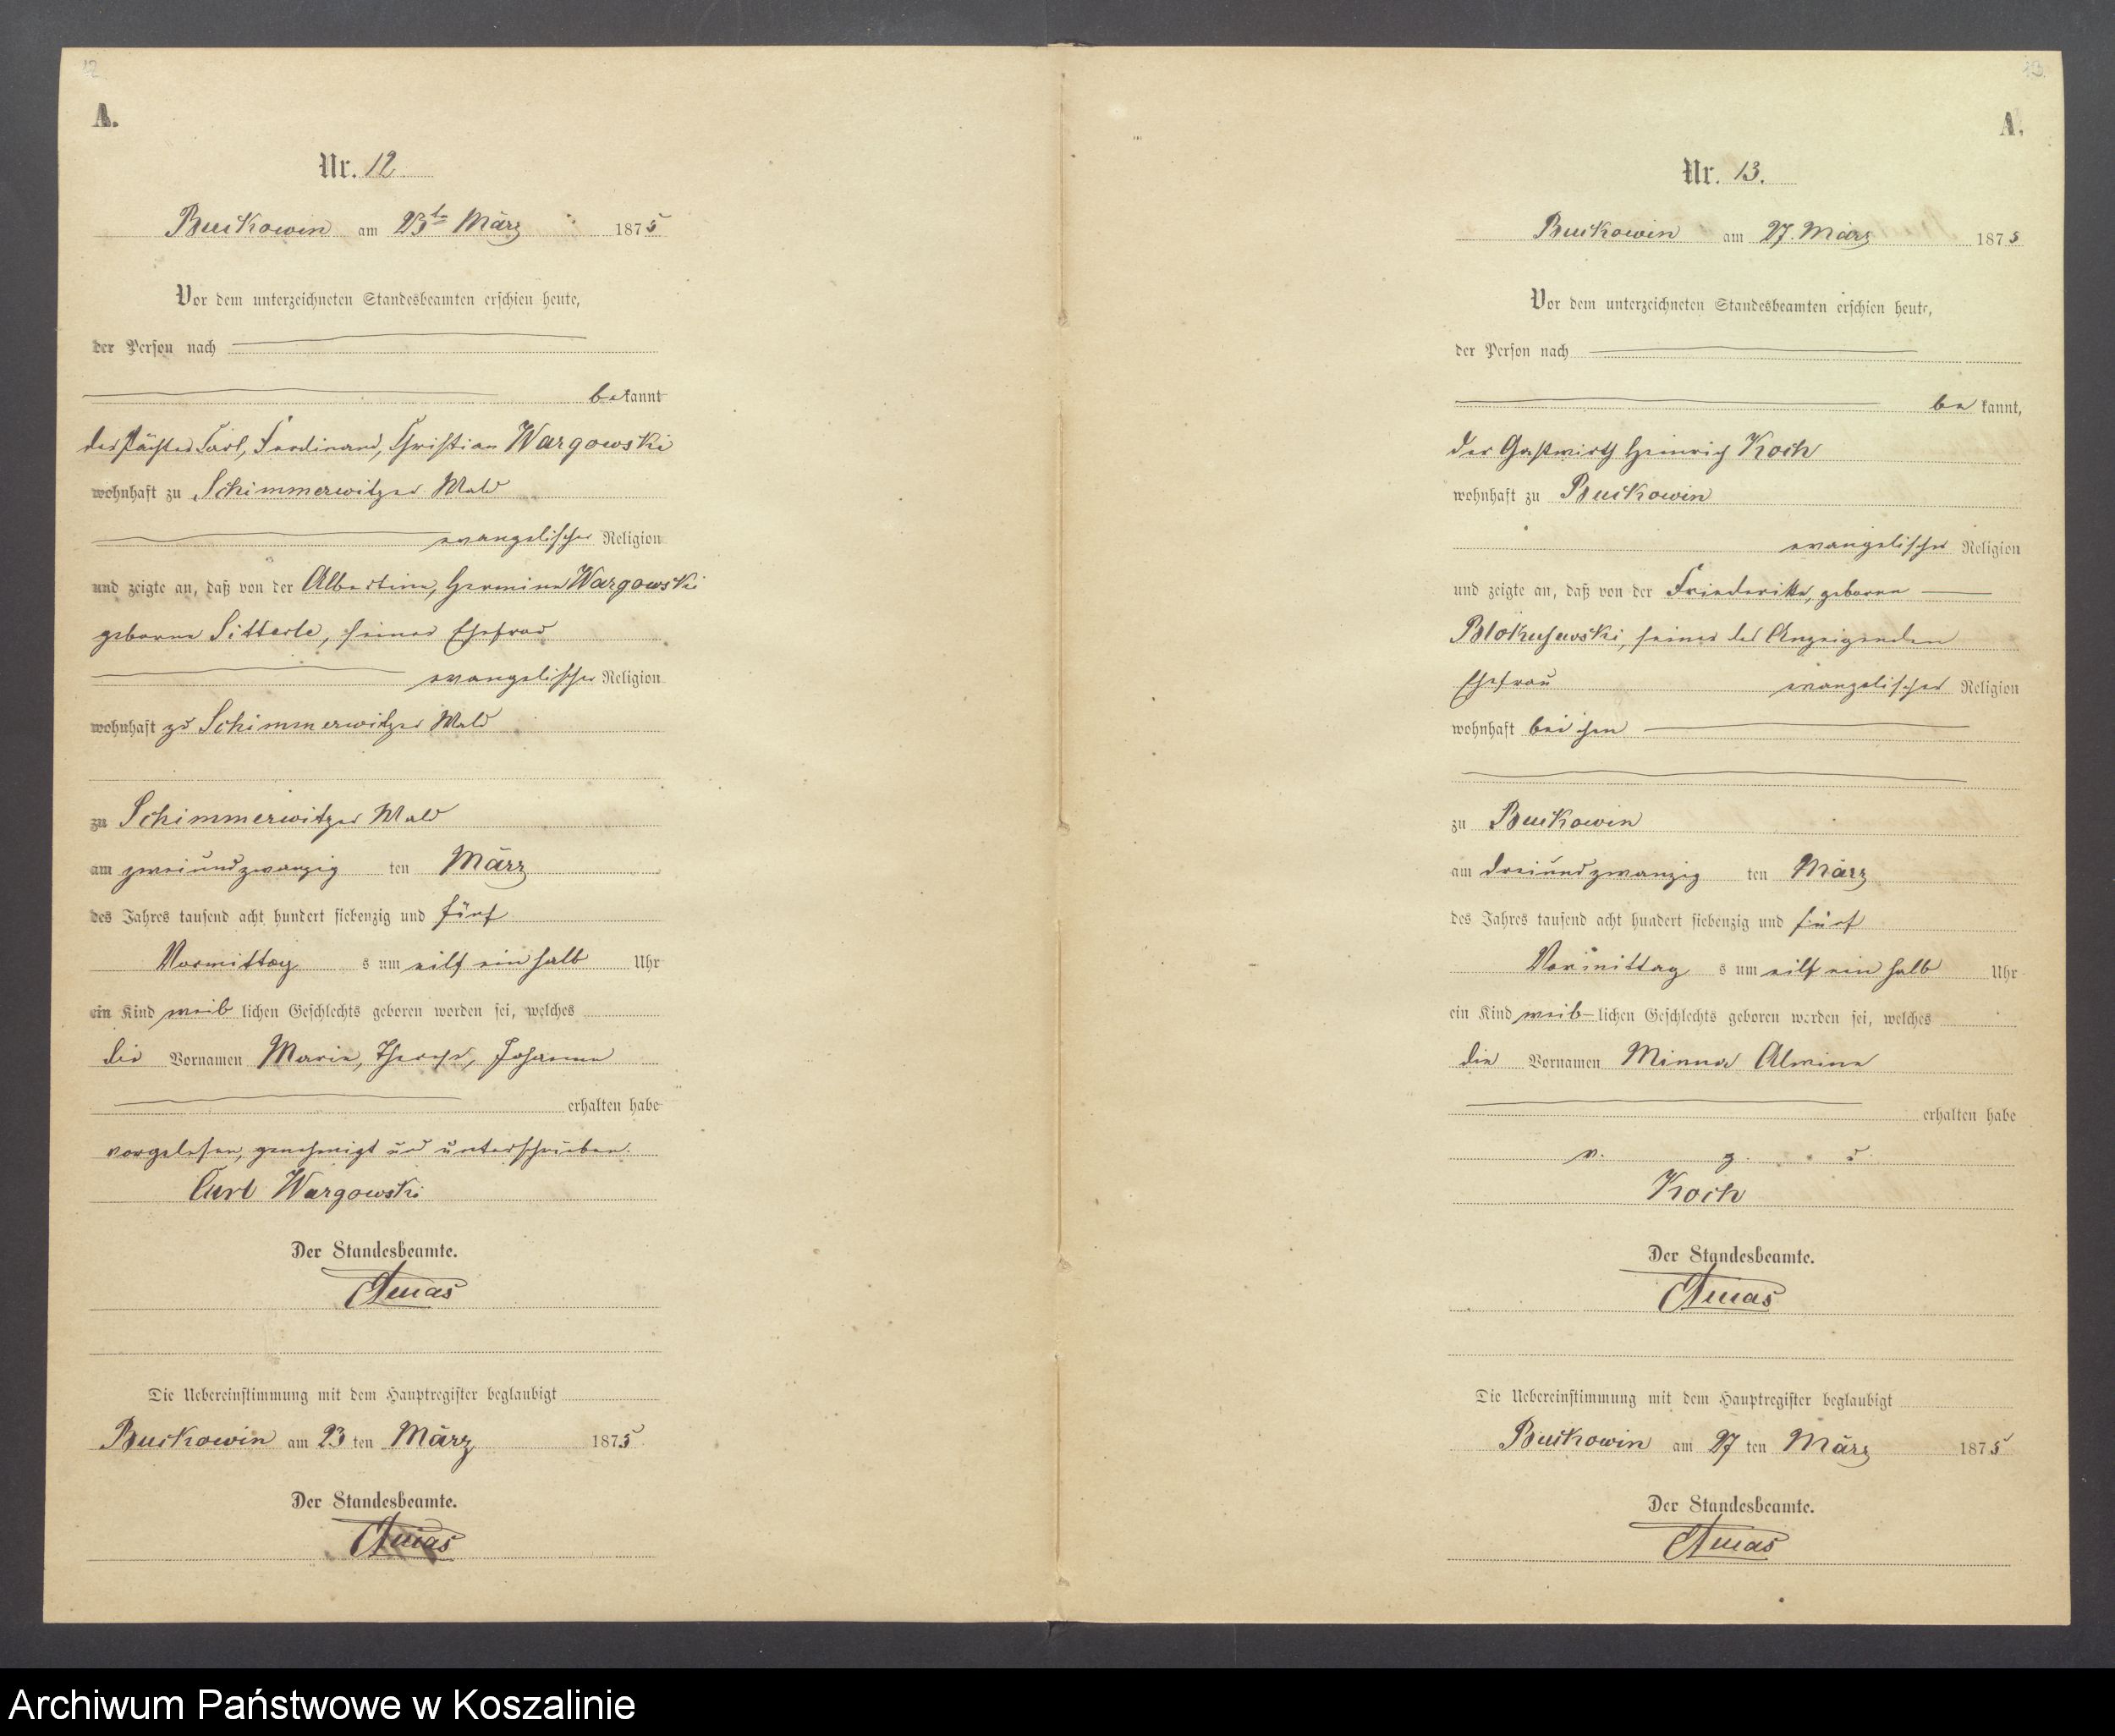 12
A.
Nr. 12
Buckowin am 23t März 1875
Vor dem unterzeichneten Standesbeamten erschien heute,
der Person nach
bekannt
der Pächter Carl, Ferdinand, Christian Wargowski
wohnhaft zu Schimmerwitzer Wald
evangelischer Religion
und zeigte an, daß von der Albertine, Hermine Wargowski
geborne Sitterle, seiner Ehefrau
evangelischer Religion
wohnhaft zu Schimmerwitzer Wald
zu Schimmerwitzer Wald
am zweiundzwanzig ten März
des Jahres tausend acht hundert siebenzig und fünf
Vormittag s um eilf ein halb Uhr
ein Kind weib lichen Geschlechts geboren worden sei, welches
die Vornamen Marie, Therese, Johanne
erhalten habe
vorgelesen, genehmigt und unterschrieben.
Carl Wargowski
Der Standesbeamte.
Die Uebereinstimmung mit dem Hauptregister beglaubigt
Buckowin am 23 ten März 1875
Der Standesbeamte.
13
A.
Nr. 13.
Buckowin am 27. März 1875
Vor dem unterzeichneten Standesbeamten erschien heute,
der Person nach
be kannt,
der Gastwirth Heinrich Koch
wohnhaft zu Buckowin
evangelischer Religion
und zeigte an, daß von der Friederike, geborne
seiner des Anzeigenden
Ehefrau evangelischer Religion
wohnhaft bei ihm
zu Buckowin
am dreiundzwanzig ten März
des Jahres tausend acht hundert siebenzig und fünf
Vormittag s um eilf ein halb Uhr
ein Kind weib- lichen Geschlechts geboren worden sei, welches
die Vornamen Minna Alwine
erhalten habe
v. g. u.
Koch
Der Standesbeamte.
Die Uebereinstimmung mit dem Hauptregister beglaubigt
Buckowin am 27 ten März 1875
Der Standesbeamte.
Archiwum Państwowe w Koszalinie